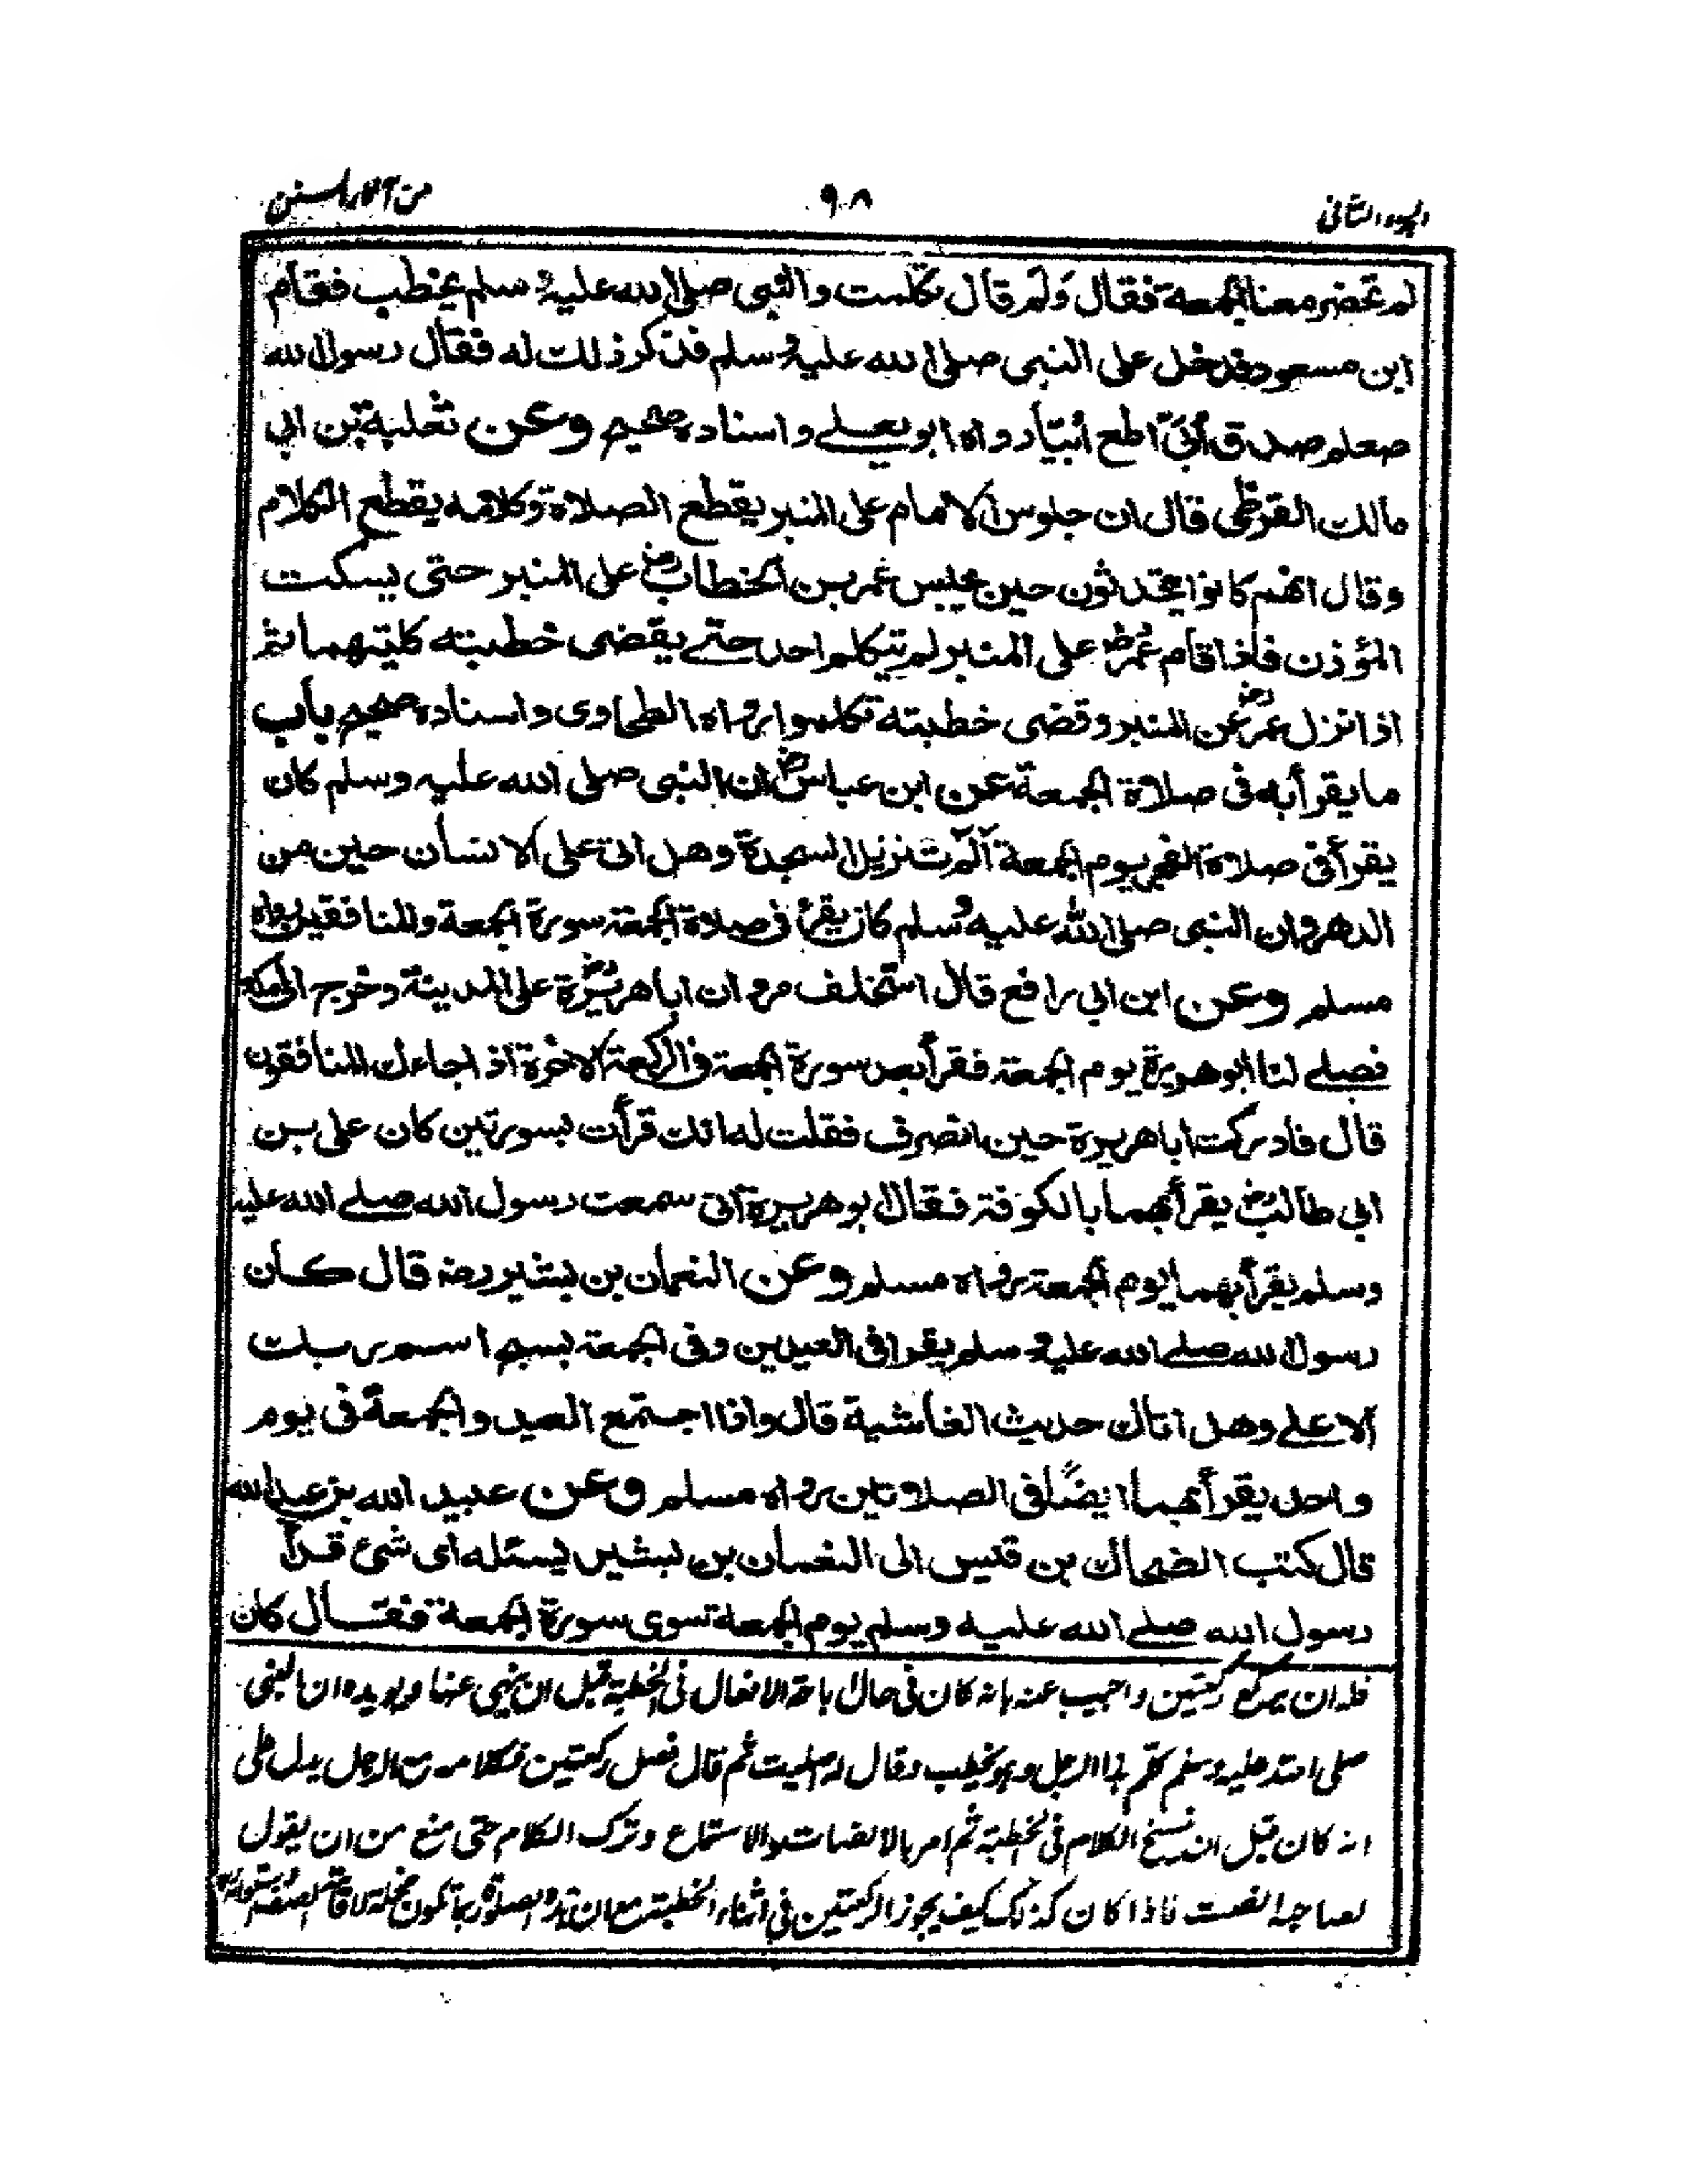 الجزء الثانى
٩٨
من آثار السنن
لم تحضر معنا الجمعة فقال ولم قال تكلمت والنبى صلى الله عليه وسلم يخطب فقام
ابن مسعود فدخل على النبى صلى الله عليه وسلم فذكر ذلك له فقال رسول الله
صعلم صدق أبىّ اطع أبيّا رواه ابو يعلے واسناده صحيح وعن ثعلبة بن ابى
مالك القرظى قال ان جلوس الامام على المنبر يقطع الصلاة وكلامه يقطع الكلام
وقال انهم كانوا يتحدثون حين يجلس عمر بن الخطاب رض على المنبر حتى يسكت
المؤذن فاذا قام عمر رض على المنبر لم يتكلم احد حتے يقضى خطبته كلتيهما ثم
اذا نزل عمر رض عن المنبر وقضى خطبته تكلموا رواه الطحاوى واسناده صحيح باب
ما يقرأ به فى صلاة الجمعة عن ابن عباس رض ان النبى صلى الله عليه وسلم كان
يقرأ فى صلاة الفجر يوم الجمعة آلم تنزيل السجدة وهل اتى على الانسان حين من
الدهر وان النبى صلى الله عليه وسلم كان يقرأ فى صلاة الجمعة سورة الجمعة والمنافقين رواه
مسلم وعن ابن ابى رافع قال استخلف مروان ابا هريرة رض على المدينة وخرج الى مكة
فصلے لنا ابو هريرة يوم الجمعة فقرأ بعد سورة الجمعة فى الركعة الاخرة اذا جاءك المنافقون
قال فادركت ابا هريرة حين انصرف فقلت له انك قرأت بسورتين كان على بن
ابى طالب رض يقرأ بهما بالكوفة فقال ابو هريرة انى سمعت رسول الله صلے الله عليه
وسلم يقرأ بهما يوم الجمعة رواه مسلم وعن النعمان بن بشير رضه قال كان
رسول الله صلے الله عليه وسلم يقرا فى العيدين وفى الجمعة بسبح اسم ربك
الاعلے وهل اتاك حديث الغاشية قال واذا اجتمع العيد والجمعة فى يوم
واحد يقرأ بهما ايضًا فى الصلاوتين رواه مسلم وعن عبيد الله بن عبد الله
قال كتب الضحاك بن قيس الى النعمان بن بشير يسئله اى شئ قرأ
رسول الله صلے الله عليه وسلم يوم الجمعة سوى سورة الجمعة فقال كان
فله ان يركع ركعتين واجيب عنه بانه كان فى حال اباحة الافعال فى الخطبة قبل ان ينهى عنها ويويده ان النبى
صلى الله عليه وسلم كلم هذا الرجل وهو يخطب وقال له اصليت ثم قال فصل ركعتين فكلامه مع الرجل يدل على
انه كان قبل ان ينسخ الكلام فى الخطبة ثم امر بالانصات والاستماع وترك الكلام حتى منع من ان يقول
لصاحبه انصت فاذا كان كذلك كيف يجوز الركعتين فى اثناء الخطبة مع ان هذه الصلوة ربما تكون مخلة